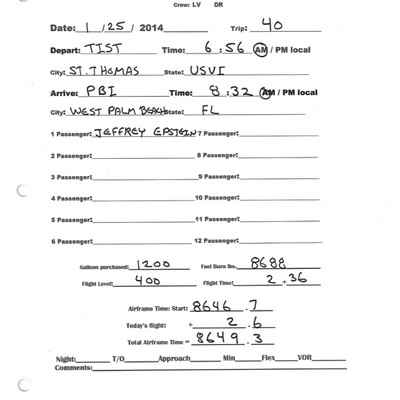 Crew: LV DR
Date: 1 / 25 / 2014 Trip: 40
Depart: TIST Time: 6 : 56 AM / PM local
City: ST. THOMAS State: USVI
Arrive: PBI Time: 8 : 32 AM / PM local
City: WEST PALM BEACH State: FL
1 Passenger: JEFFREY EPSTEIN 7 Passenger:
2 Passenger: 8 Passenger:
3 Passenger: 9 Passenger:
4 Passenger: 10 Passenger:
5 Passenger: 11 Passenger:
6 Passenger: 12 Passenger:
Gallons purchased: 1200 Fuel Burn lbs. 8688
Flight Level: 400 Flight Time: 2 + 36
Airframe Time: Start: 8646 . 7
Today's flight: + 2 . 6
Total Airframe Time = 8649 . 3
Night: T/O Approach Min Flex VOR
Comments: